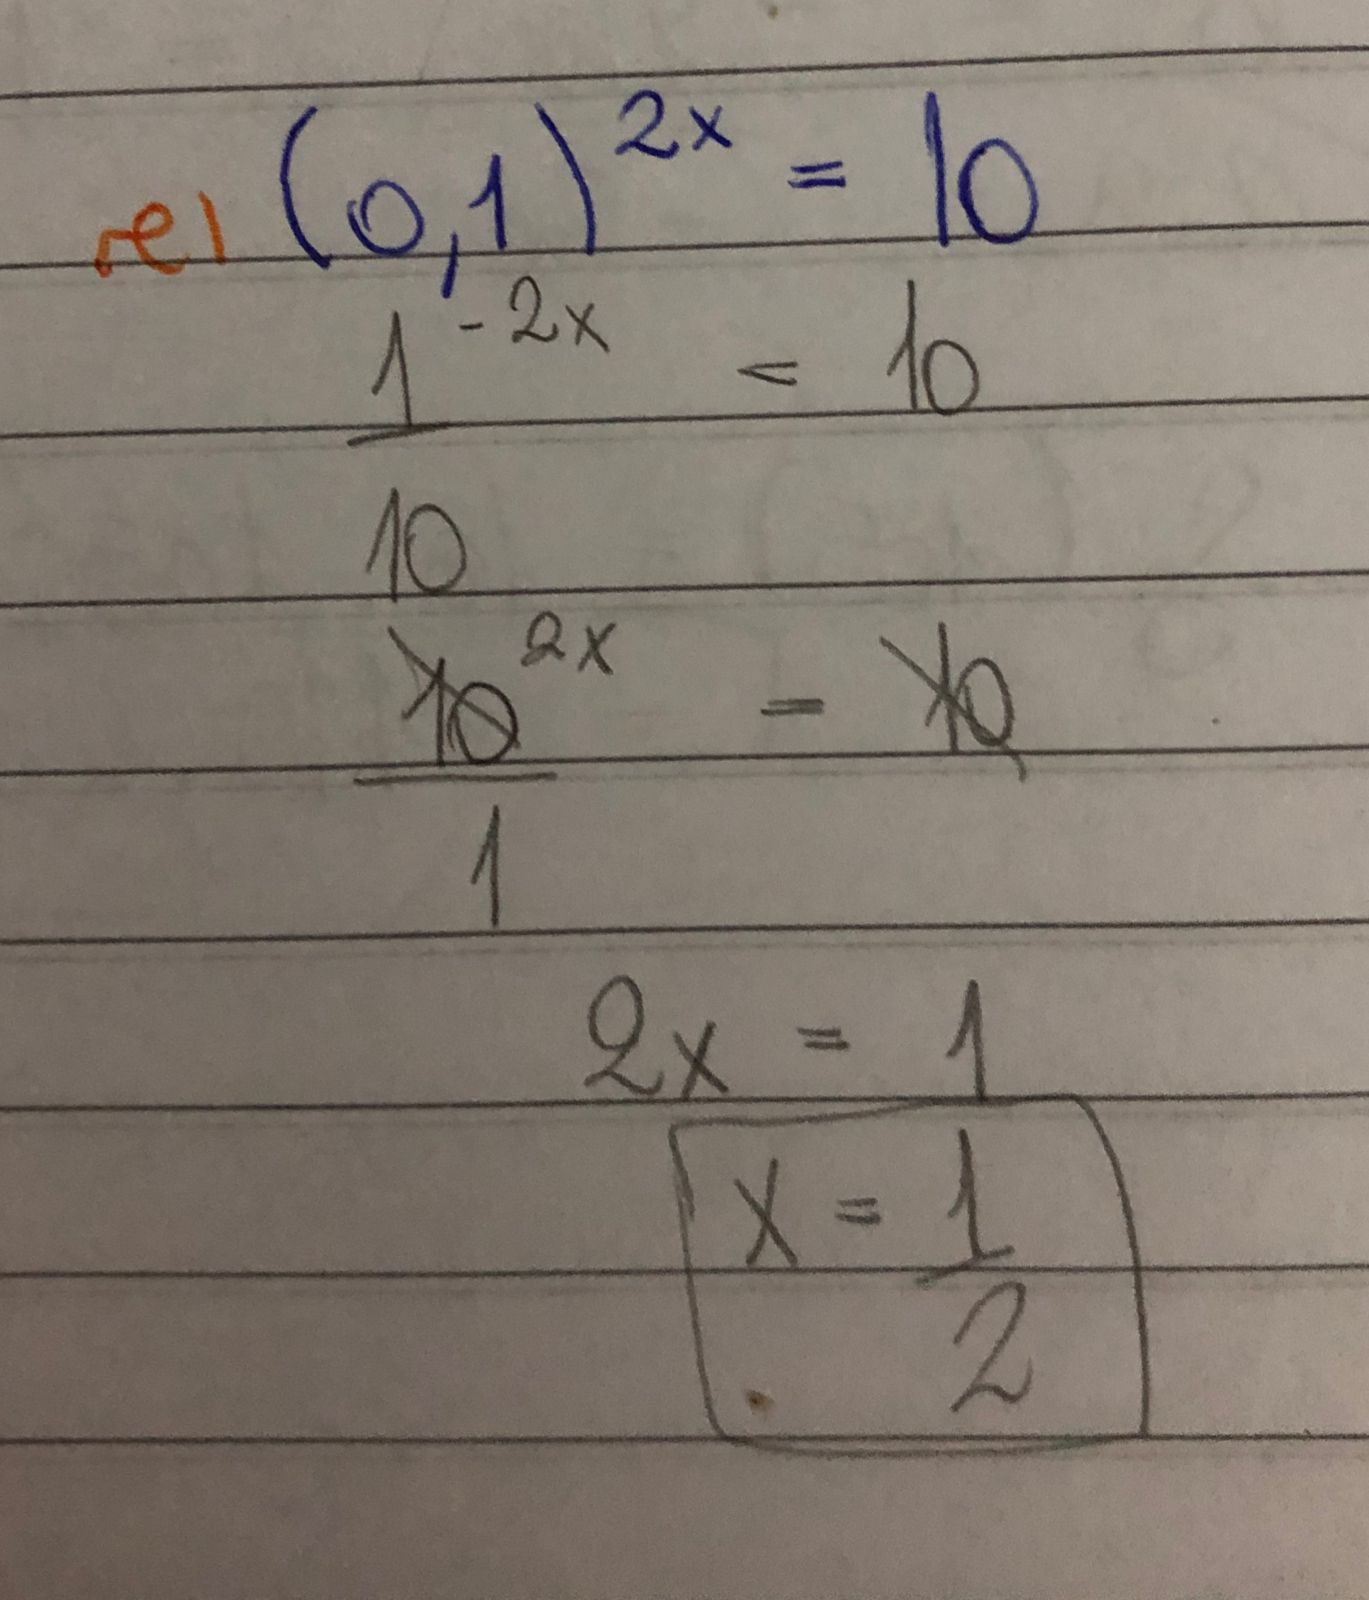 re) (0,1)^2x = 10
1^-2x = 10
10
10^2x = 10
1
2x = 1
x = 1
2